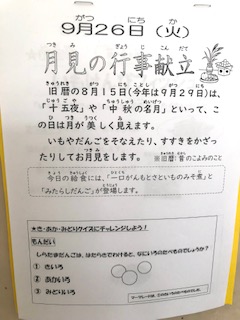 9月26日（火）
月見の行事献立
旧暦の8月15日(今年は9月29日)は、
「十五夜」や「中秋の名月」といって、こ
の日は月が美しく見えます。
いもやだんごをそなえたり、すすきをかざっ
たりしてお月見をします。 ※旧暦:昔のこよみのこと
今日の給食には、「一口がんもとさといものみそ煮」と
「みたらしだんご」が登場します。
★き・あか・みどりクイズにチャレンジしよう！
もんだい
しらたまだんごは、はたらきでわけると、なにいろのたべものでしょうか？
① きいろ
② あかいろ
③ みどりいろ